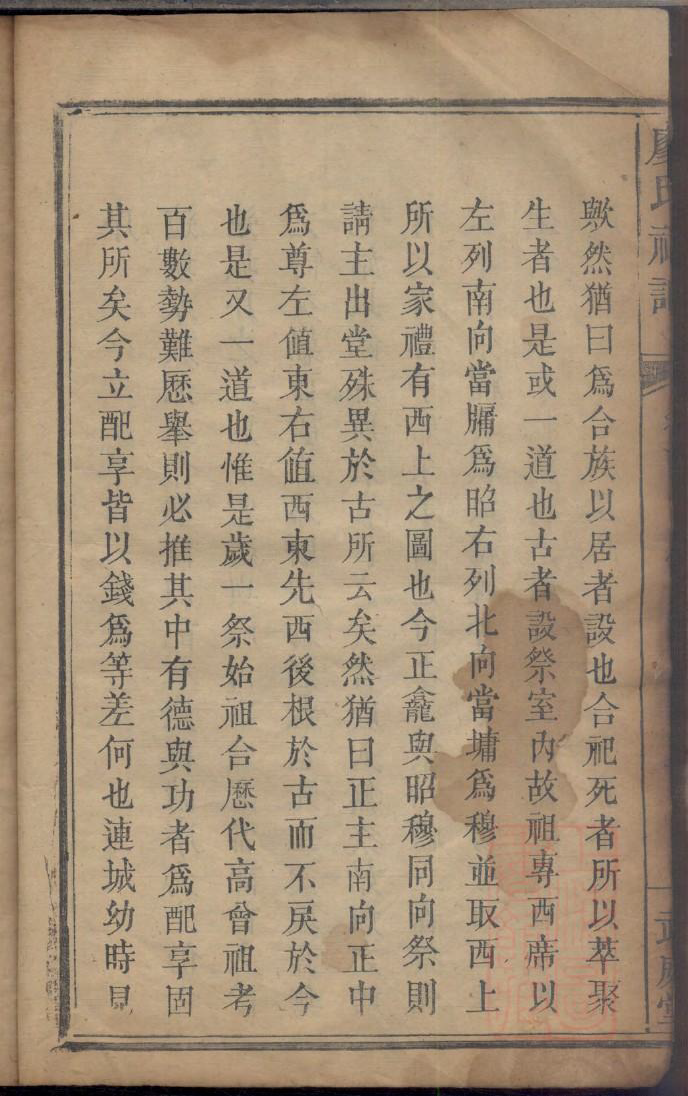 歟然猶曰爲合族以居者設也合祀死者所以萃聚
生者也是或一道也古者設祭室內故祖專西席以
左列南向當牖爲昭右列北向當墉爲穆並取西上
所以家禮有西上之圖也今正龕與昭穆同向祭則
請主出堂殊異於古所云矣然猶曰正主南向正中
爲尊左值東右值西東先西後根於古而不戾於今
也是又一道也惟是歲一祭始祖合歷代高曾祖考
百數勢難歷舉則必推其中有德與功者爲配享固
其所矣今立配享皆以錢爲等差何也連城幼時見